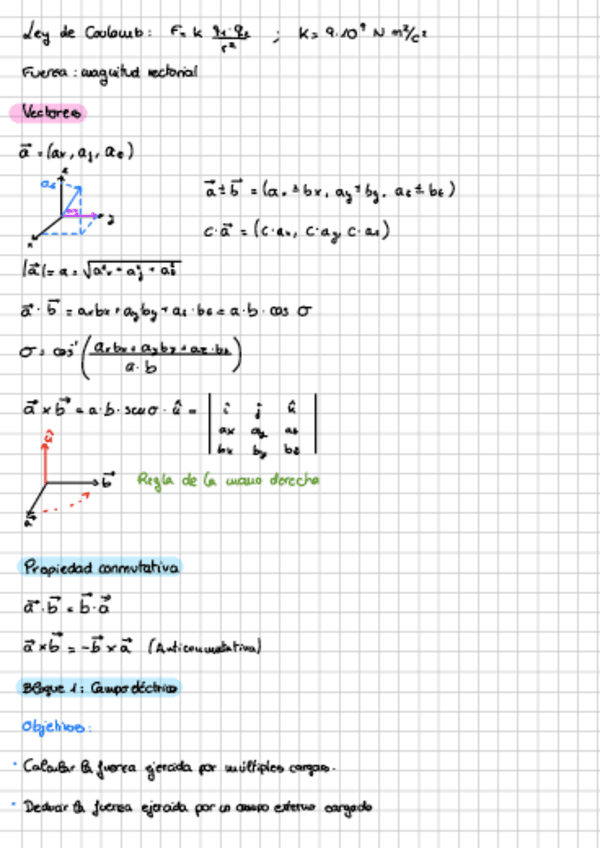 Ley de Coulomb: F = k q₁·q₂/r² ; K = 9·10⁹ N m²/c²
Fuerza: magnitud vectorial
Vectores
a⃗ = (ax, ay, az)
z
az
y
x
a⃗ ± b⃗ = (ax ± bx, ay ± by, az ± bz)
c·a⃗ = (c·ax, c·ay, c·az)
|a⃗| = a = √(a²x + a²y + a²z)
a⃗ · b⃗ = axbx + ayby + az·bz = a·b·cos σ
σ = cos⁻¹ (axbx + ayby + az·bz / a·b)
a⃗ x b⃗ = a·b·senσ·û = | i j û
ax ay az
bx by bz |
û
b⃗
a⃗
Regla de la mano derecha
Propiedad conmutativa
a⃗·b⃗ = b⃗·a⃗
a⃗ x b⃗ = -b⃗ x a⃗ (Anticonmutativa)
Bloque 1: Campo eléctrico
Objetivos:
· Calcular la fuerza ejercida por múltiples cargas.
· Deducir la fuerza ejercida por un campo externo cargado